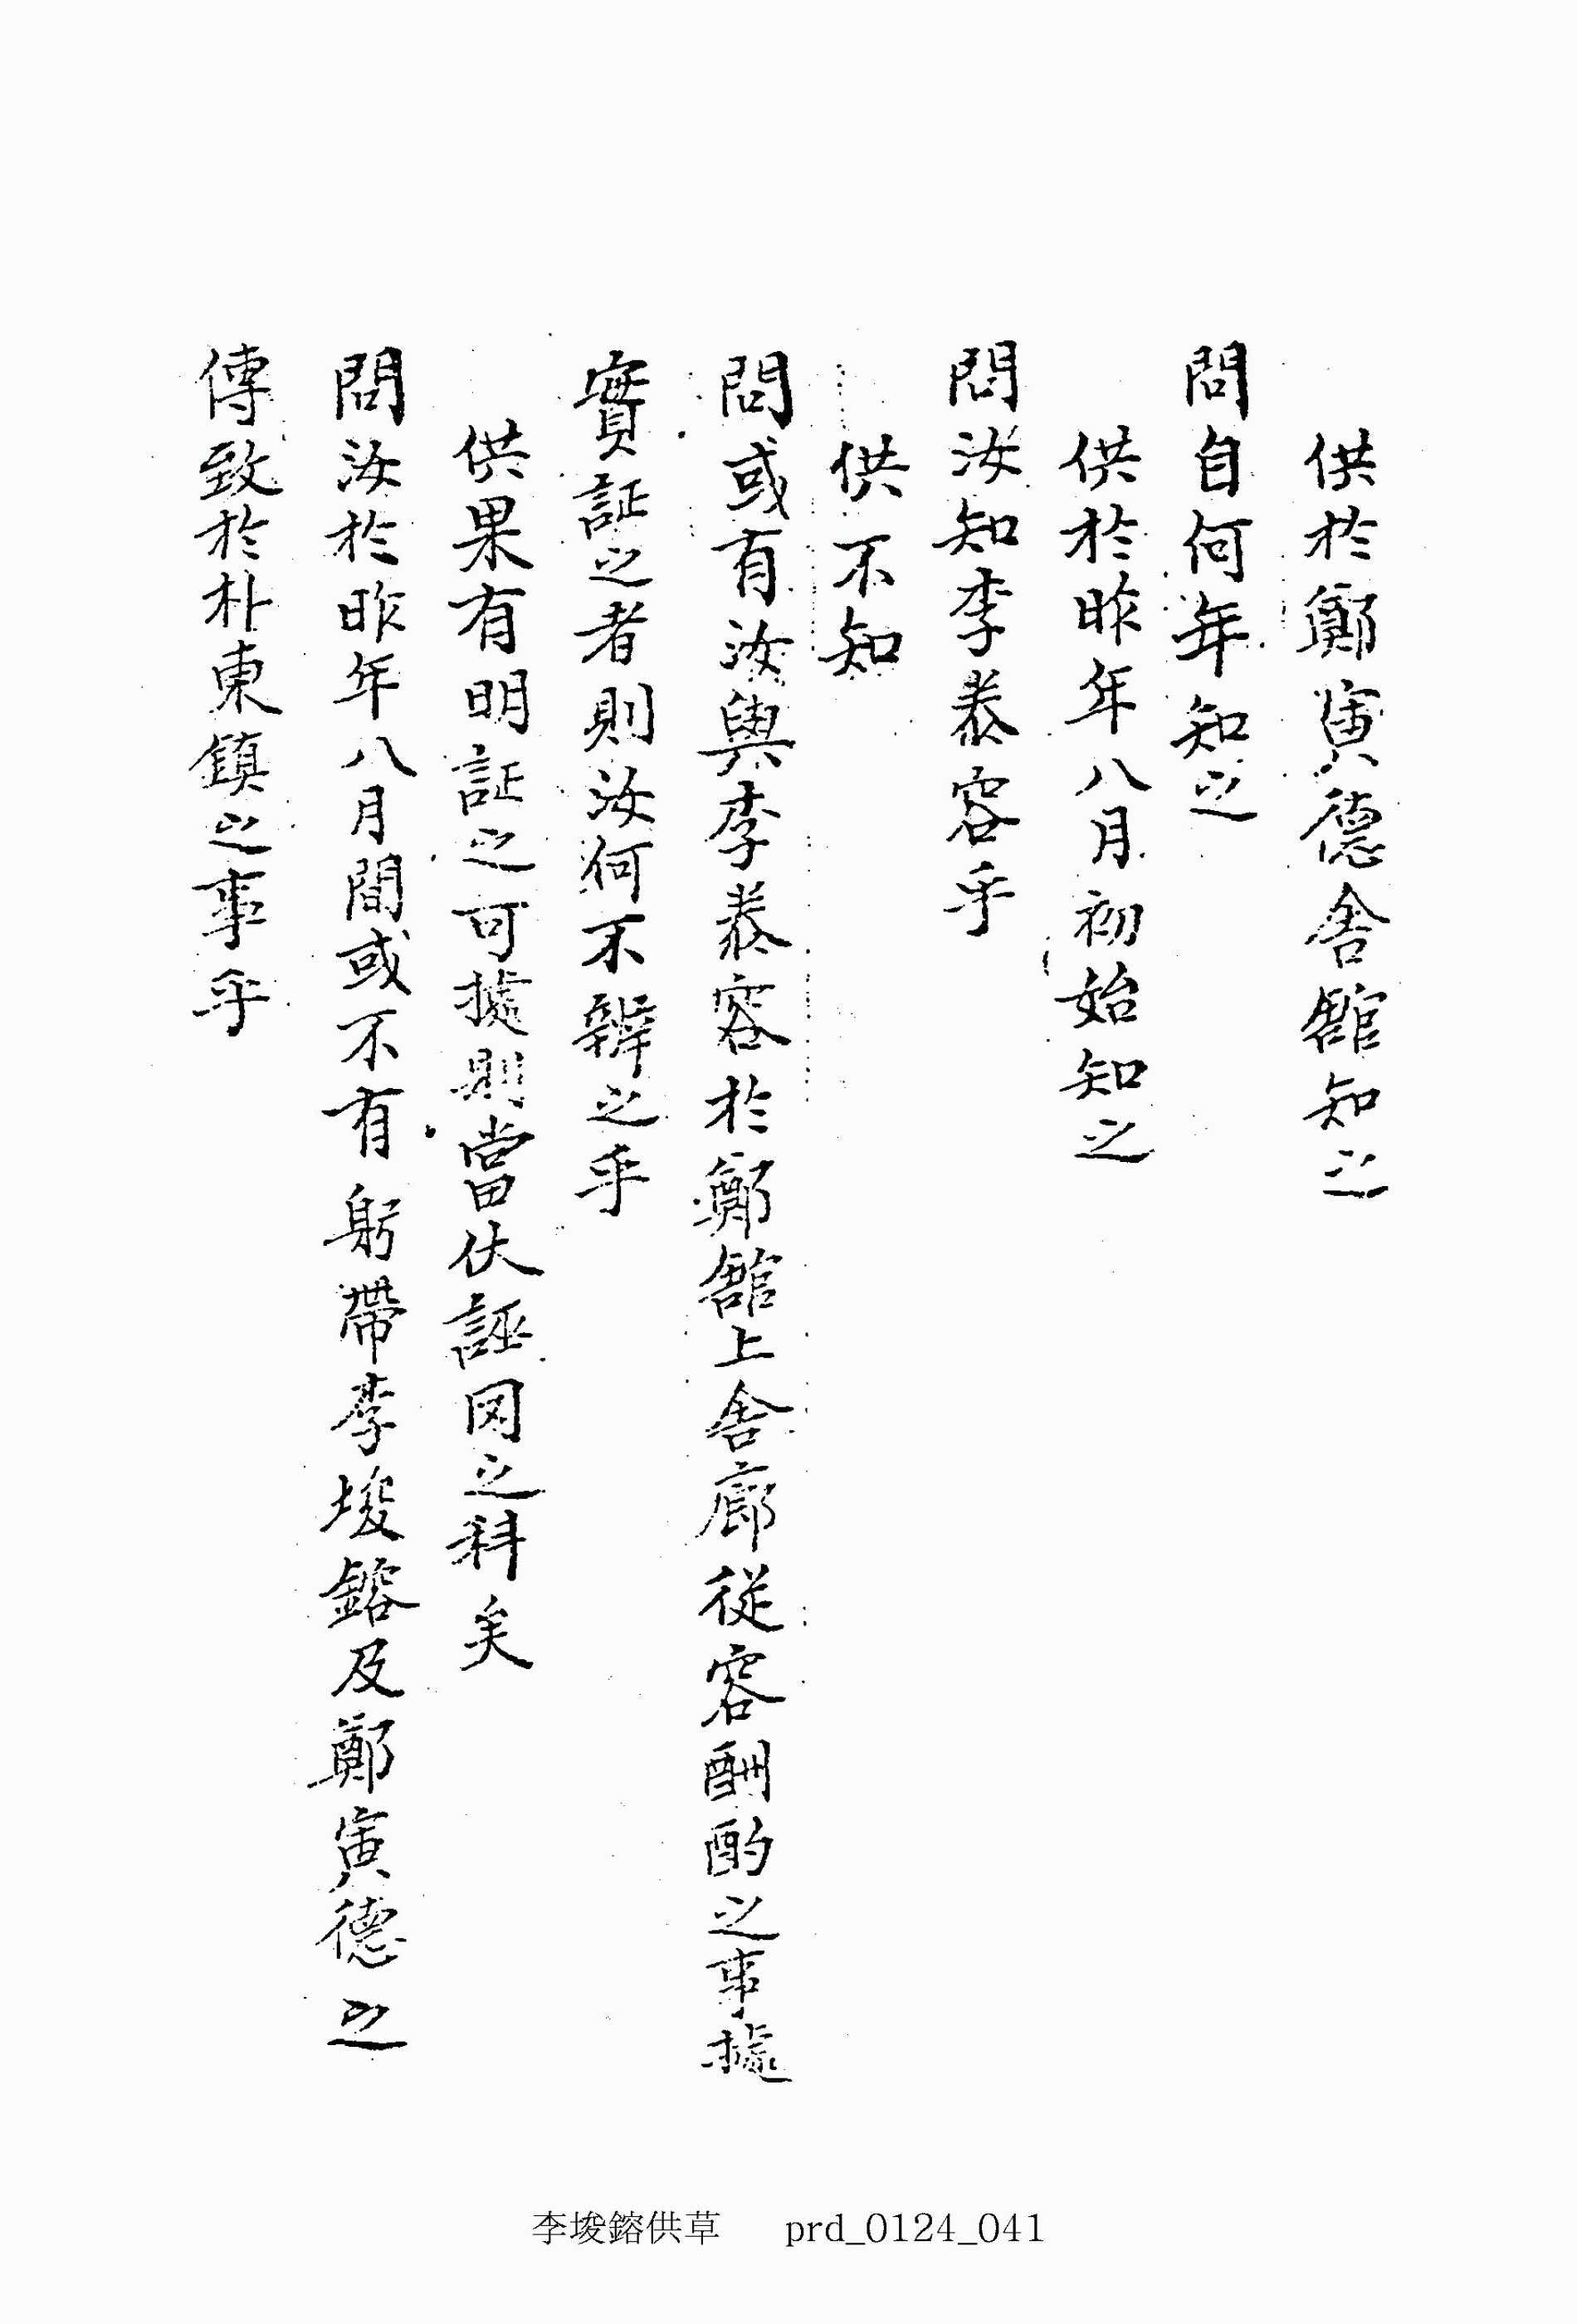 供於鄭寅德舍舘知之
問自何年知之
供於昨年八月初始知之
問汝知李泰容乎
供不知
問或有汝與李泰容於鄭舘上舍廊從容酬酌之事據
實証之者則汝何不辨之乎
供果有明証之可據則當伏誣罔之科矣
問汝於昨年八月間或不有躬帶李埈鎔及鄭寅德之
傳致於朴東鎮之事乎
李埈鎔供草 prd_0124_041